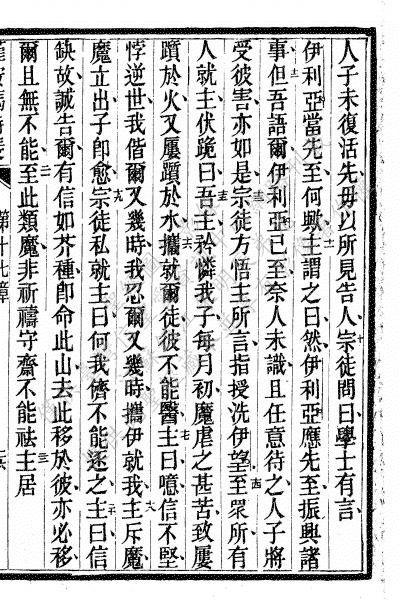 人子未復活先毋以所見告人宗徒問曰學士有言
伊利亞當先至何歟主謂之曰然伊利亞應先至振興諸
事但吾語爾伊利亞已至奈人未識且任意待之人子將
受彼害亦如是宗徒方悟主所言指授洗伊望至眾所有
人就主伏跪曰吾主矜憐我子每月初魔虐之甚苦致屢
躓於火又屢躓於水攜就爾徒彼不能醫主曰噫信不堅
悖逆世我偕爾又幾時我忍爾又幾時攜伊就我主斥魔
魔立出子卽愈宗徒私就主曰何我儕不能逐之主曰信
缺故誠告爾有信如芥種卽命此山去此移於彼亦必移
爾且無不能至此類魔非祈禱守齋不能祛主居
第十七章